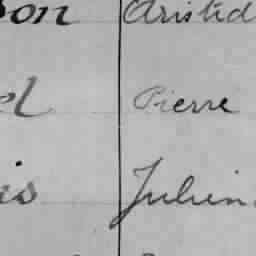 son Aristid
el Pierre
is Julien